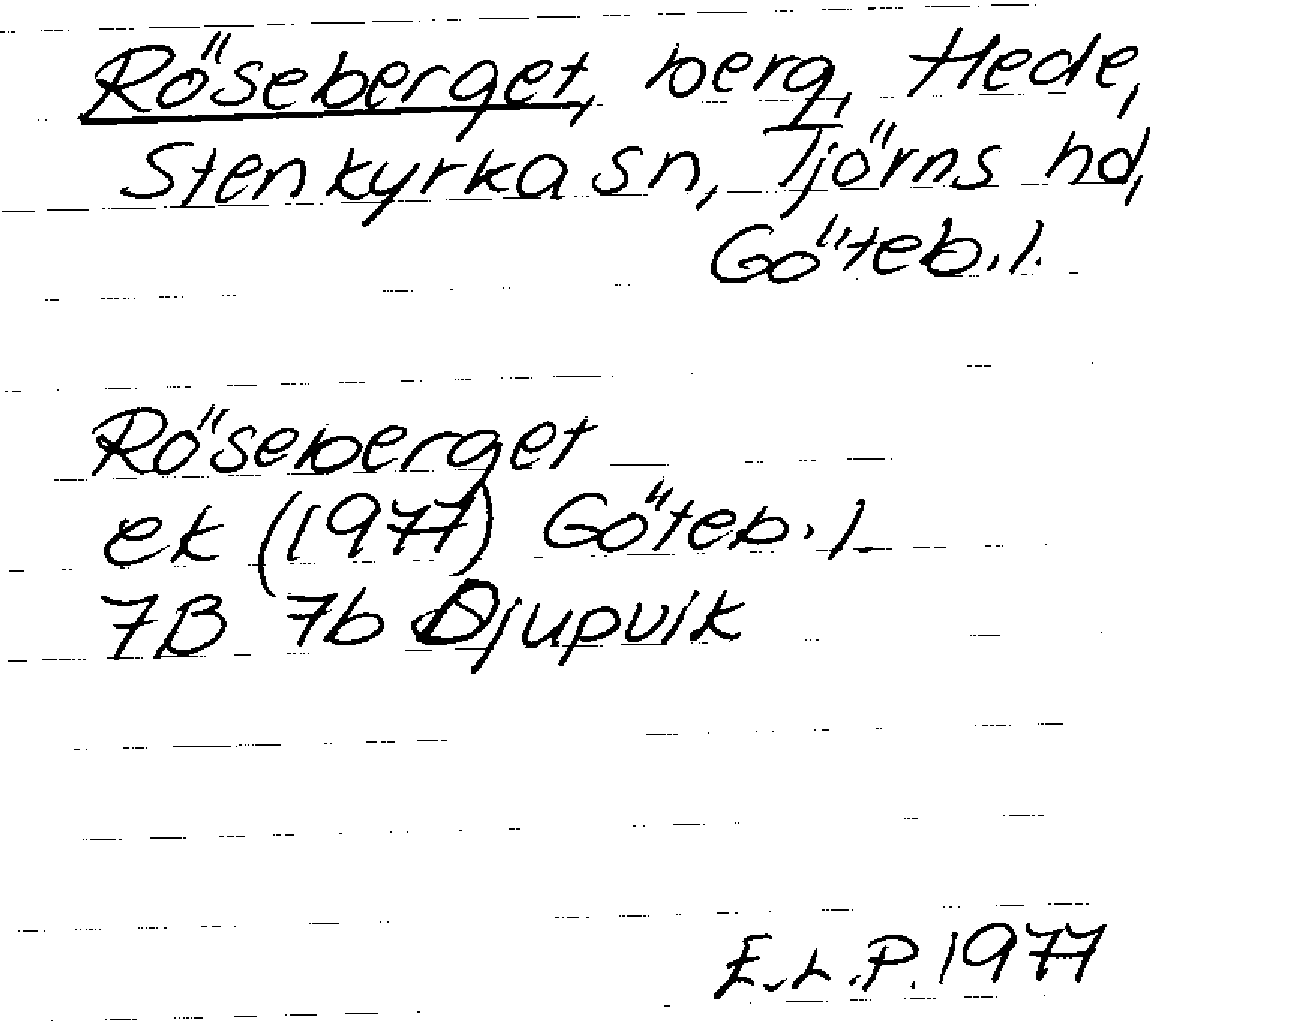 Röseberget, berg, Hede,
Stenkyrka sn, Tjörns hd,
Göteb.l.
Röseberget
ek (1977) Göteb.l.
7B 7b Djupvik
E.L.P. 1977